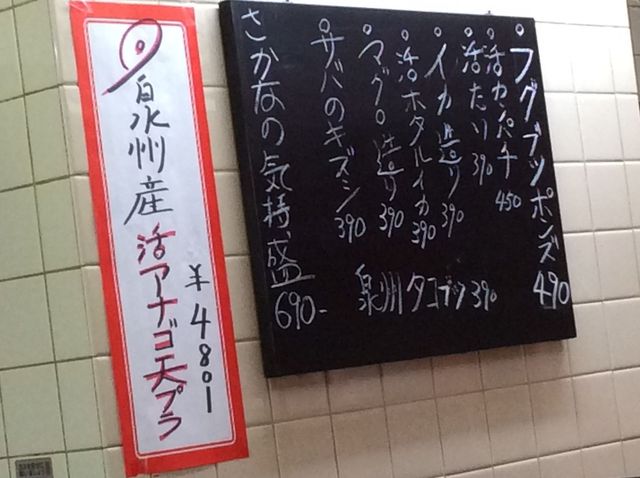 フグブツポンズ 490
活カンパチ 450
活たい 390
イカ造り 390
活ホタルイカ 390
マグロ造り 390
サバのキズシ 390
さかなの気持盛 690-
泉州タコブツ 390
泉州産活アナゴ天プラ
¥480-